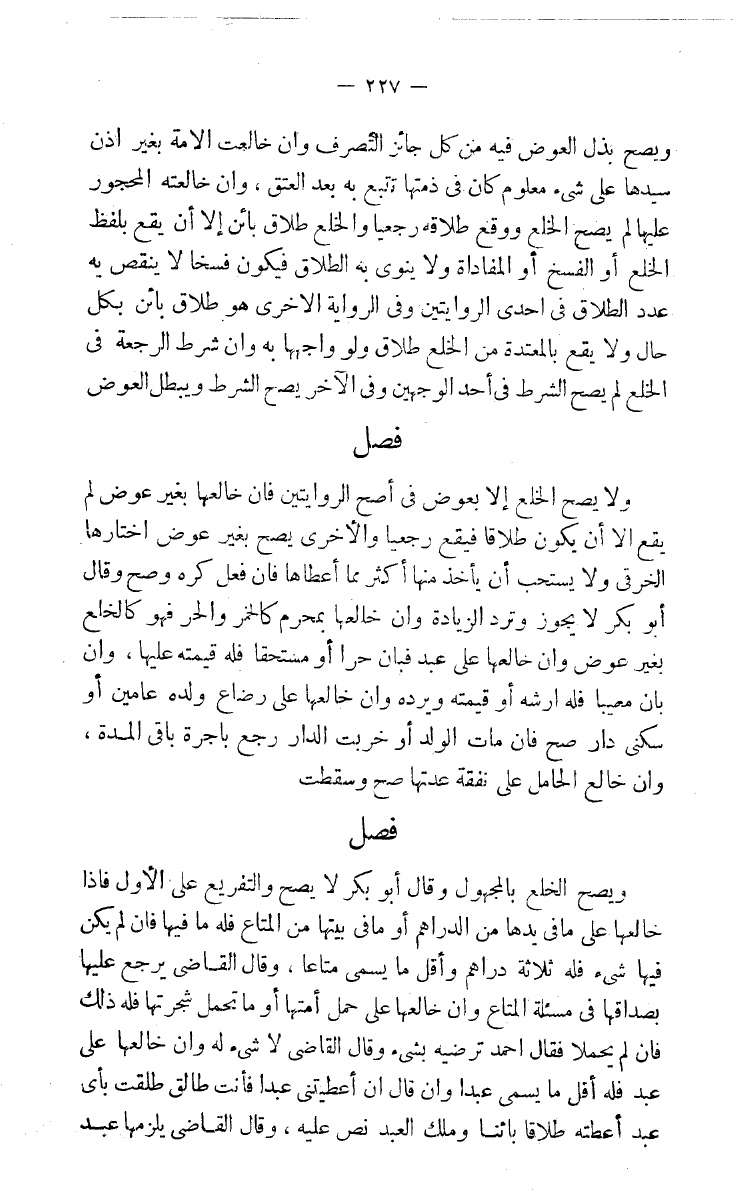 — ٢٢٧ —
ويصح بذل العوض فيه من كل جائز التصرف وان خالعت الامة بغير اذن
سيدها على شىء معلوم كان فى ذمتها تتبع به بعد العتق ، وان خالعته المحجور
عليها لم يصح الخلع ووقع طلاقه رجعيا والخلع طلاق بائن إلا أن يقع بلفظ
الخلع أو الفسخ أو المفاداة ولا ينوى به الطلاق فيكون فسخا لا ينقص به
عدد الطلاق فى احدى الروايتين وفى الرواية الاخرى هو طلاق بائن بكل
حال ولا يقع بالمعتدة من الخلع طلاق ولو واجهها به وان شرط الرجعة فى
الخلع لم يصح الشرط فى أحد الوجهين وفى الآخر يصح الشرط ويبطل العوض
فصل
ولا يصح الخلع إلا بعوض فى أصح الروايتين فان خالعها بغير عوض لم
يقع الا أن يكون طلاقا فيقع رجعيا والأخرى يصح بغير عوض اختارها
الخرقى ولا يستحب أن يأخذ منها أكثر مما أعطاها فان فعل كره وصح وقال
أبو بكر لا يجوز وترد الزيادة وان خالعها بمحرم كالخمر والحر فهو كالخلع
بغير عوض وان خالعها على عبد فبان حرا أو مستحقا فله قيمته عليها ، وان
بان معيبا فله ارشه أو قيمته ويرده وان خالعها على رضاع ولده عامين أو
سكنى دار صح فان مات الولد أو خربت الدار رجع باجرة باقى المدة ،
وان خالع الحامل على نفقة عدتها صح وسقطت
فصل
ويصح الخلع بالمجهول وقال أبو بكر لا يصح والتفريع على الأول فاذا
خالعها على مافى يدها من الدراهم أو مافى بيتها من المتاع فله ما فيها فان لم يكن
فيها شىء فله ثلاثة دراهم وأقل ما يسمى متاعا ، وقال القاضى يرجع عليها
بصداقها فى مسئلة المتاع وان خالعها على حمل أمتها أو ما تحمل شجرتها فله ذلك
فان لم يحملا فقال احمد ترضيه بشىء وقال القاضى لا شىء له وان خالعها على
عبد فله أقل ما يسمى عبدا وان قال ان أعطيتنى عبدا فأنت طالق طلقت بأى
عبد أعطته طلاقا بائنا وملك العبد نص عليه ، وقال القاضى يلزمها عبد